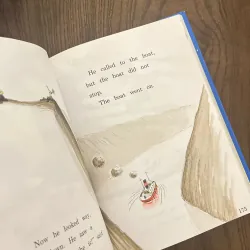 Now he looked
He saw a
He called to the boat,
but the boat did not
stop.
The boat went on.
175